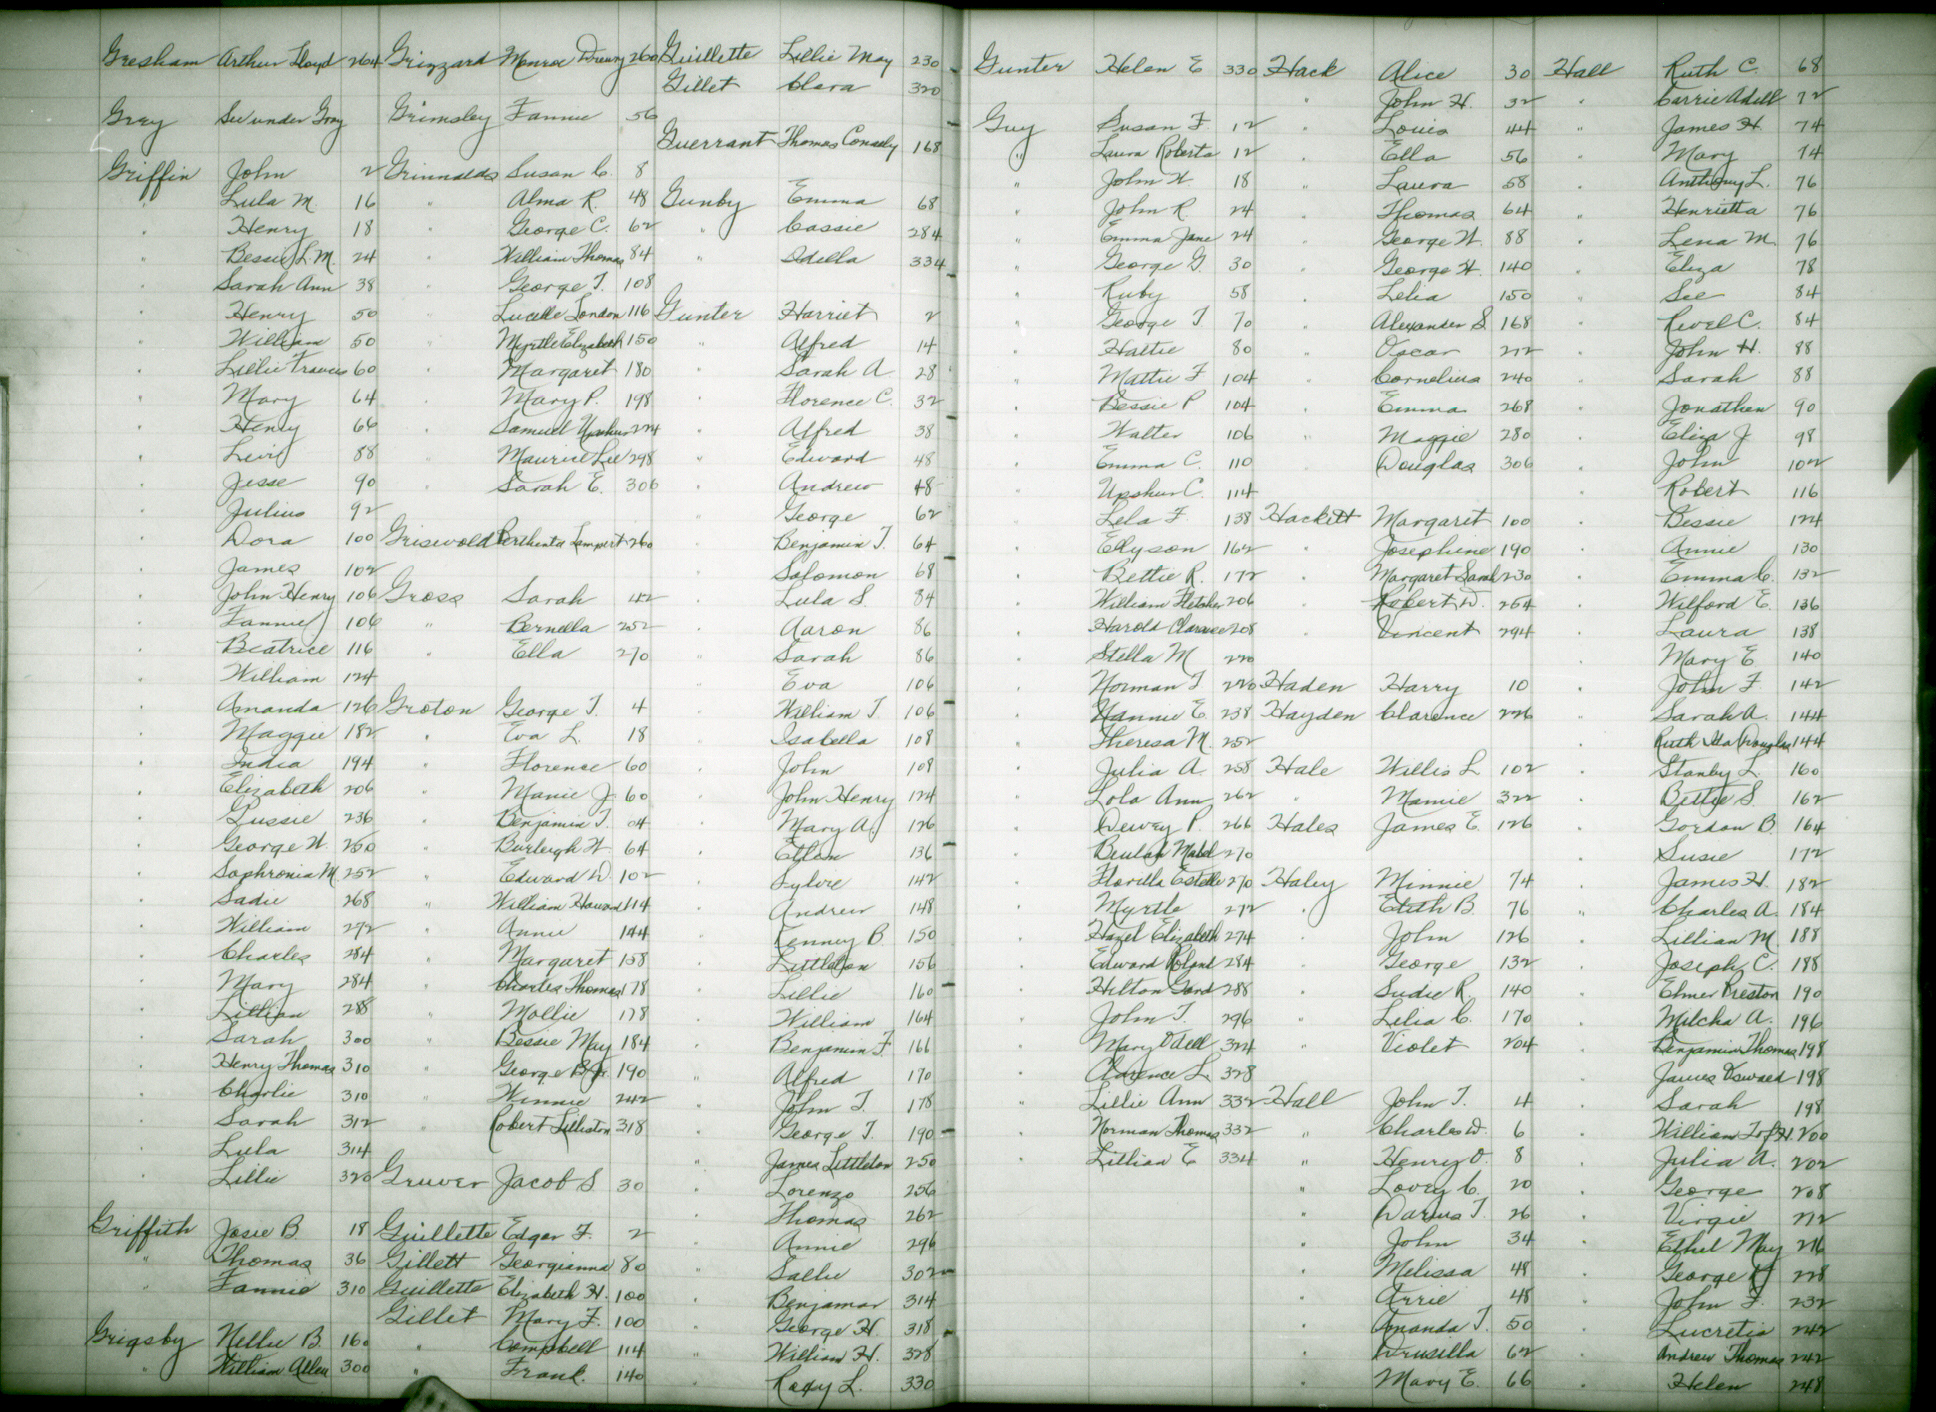 Gresham Arthur Floyd 264
Grey See under Gray
Griffin John 2
" Lula M. 16
" Henry 18
" Bessie L. M. 24
" Sarah Ann 38
" Henry 50
" William 50
" Lillie Frances 60
" Mary 64
" Henry 66
" Levi 88
" Jesse 90
" Julius 92
" Dora 100
" James 102
" John Henry 106
" Fannie 106
" Beatrice 116
" William 124
" Amanda 126
" Maggie 182
" India 194
" Elizabeth 206
" Gussie 236
" George W. 250
" Sophronia M. 252
" Sadie 268
" William 272
" Charles 284
" Mary 284
" Lillian 288
" Sarah 300
" Henry Thomas 310
" Charlie 310
" Sarah 312
" Lula 314
" Lillie 320
Griffith Josie B 18
" Thomas 36
" Fannie 310
Grigsby Nellie B. 160
" William Allen 300
Grizzard Monroe Drewry 260
Grimsley Fannie 56
Grinnalds Susan C. 8
" Alma R. 48
" George C. 62
" William Thomas 84
" George T. 108
" Lucille London 116
" Myrtle Elizabeth 150
" Margaret 180
" Mary P. 198
" Samuel Upshur 224
" Maurice Lee 298
" Sarah E. 306
Griswold 260
Gross Sarah 42
" Bernella 252
" Ella 270
Groton George T. 4
" Eva L. 18
" Florence 60
" Manie J. 60
" Benjamin T. 64
" Burleigh W 64
" Edward D. 102
" William Howard 114
" Annie 144
" Margaret 158
" Charles Thomas 178
" Mollie 178
" Bessie May 184
" George B Jr. 190
" Winnie 242
" Robert Lilliston 318
Gruver Jacob S 30
Guillette Edgar F. 2
Gillett Georgianna 80
Guillette Elizabeth H. 100
Gillet Mary F. 100
" Campbell 114
" Frank. 140
Guillette Lillie May 230
Gillet Clara 320
Guerrant Thomas Conselly 168
Gunby Emma 68
" Cassie 284
" Odella 334
Gunter Harriet 2
" Alfred 14
" Sarah A 28
" Florence C. 32
" Alfred 38
" Edward 48
" Andrew 48
" George 62
" Benjamin T. 64
" Solomon 68
" Lula S. 84
" Aaron 86
" Sarah 86
" Eva 106
" William T. 106
" Isabella 108
" John 108
" John Henry 124
" Mary A. 126
" Ethan 136
" Sylvie 142
" Andrew 148
" Kenney B. 150
" Littleton 156
" Lillie 160
" William 164
" Benjamin F. 166
" Alfred 170
" John T. 178
" George T. 190
" James Littleton 250
" Lorenzo 256
" Thomas 262
" Annie 296
" Sallie 302
" Benjamar 314
" George H. 318
" William H. 328
" Rody L. 330
Gunter Helen E 330
Guy Susan F. 12
" Laura Roberta 12
" John W. 18
" John R. 24
" Emma Jane 24
" George G. 30
" Ruby 58
" George T 70
" Hattie 80
" Mattie F 104
" Bessie P 104
" Walter 106
" Emma C. 110
" Upshur C. 114
" Lela F 138
" Ellyson 162
" Bettie R. 172
" William Fletcher 206
" Harold Clarence 208
" Stella M 220
" Norman T 220
" Nannie E. 238
" Theresa M. 252
" Julia A. 258
" Lola Ann 262
" Dewey P. 266
" Beulah Mabel 270
" Florilla Estelle 270
" Myrtle 272
" Hazel Elizabeth 274
" Edward Roland 284
" Hilton Gard 288
" John T. 296
" Mary Odell 324
" Clarence L. 328
" Lillie Ann 332
" Norman Thomas 332
" Lillian E 334
Hack Alice 30
" John H. 32
" Louis 44
" Ella 56
" Laura 58
" Thomas 64
" George W. 88
" George H. 140
" Lelia 150
" Alexander S. 168
" Oscar 212
" Cornelius 240
" Emma 268
" Maggie 280
" Douglas 306
Hackett Margaret 100
" Josephine 190
" Margaret Sarah 230
" Robert D. 254
" Vincent 294
Haden Harry 10
Hayden Clarence 226
Hale Willis L 102
" Mamie 322
Hales James E. 126
Haley Minnie 74
" Edith B. 76
" John 126
" George 132
" Sudie R. 140
" Lelia C. 170
" Violet 204
Hall John T. 4
" Charles D. 6
" Henry O. 8
" Lovey C. 20
" Darius T. 26
" John 34
" Melissa 48
" Arrie 48
" Amanda T. 50
" Drusilla 62
" Mary E. 66
Hall Ruth C. 68
" Carrie Adell 72
" James H. 74
" Mary 74
" Anthony L. 76
" Henrietta 76
" Lena M. 76
" Eliza 78
" See 84
" Revell C. 84
" John H. 88
" Sarah 88
" Jonathan 90
" Eliza J 98
" John 102
" Robert 116
" Bessie 124
" Annie 130
" Emma C. 132
" Wilford E. 136
" Laura 138
" Mary E 140
" John F. 142
" Sarah A. 144
" Ruth Ida Douglas 144
" Stanby L. 160
" Bettie S. 162
" Gordon B. 164
" Susie 172
" James H. 182
" Charles A. 184
" Lillian M. 188
" Joseph C. 188
" Elmer Preston 190
" Milcha A. 196
" Benjamin Thomas 198
" James Oswald 198
" Sarah 198
" William H. 200
" Julia A. 202
" George 208
" Virgie 212
" Ethel May 216
" George K 228
" John F. 232
" Lucretia 242
" Andrew Thomas 242
" Helen 248